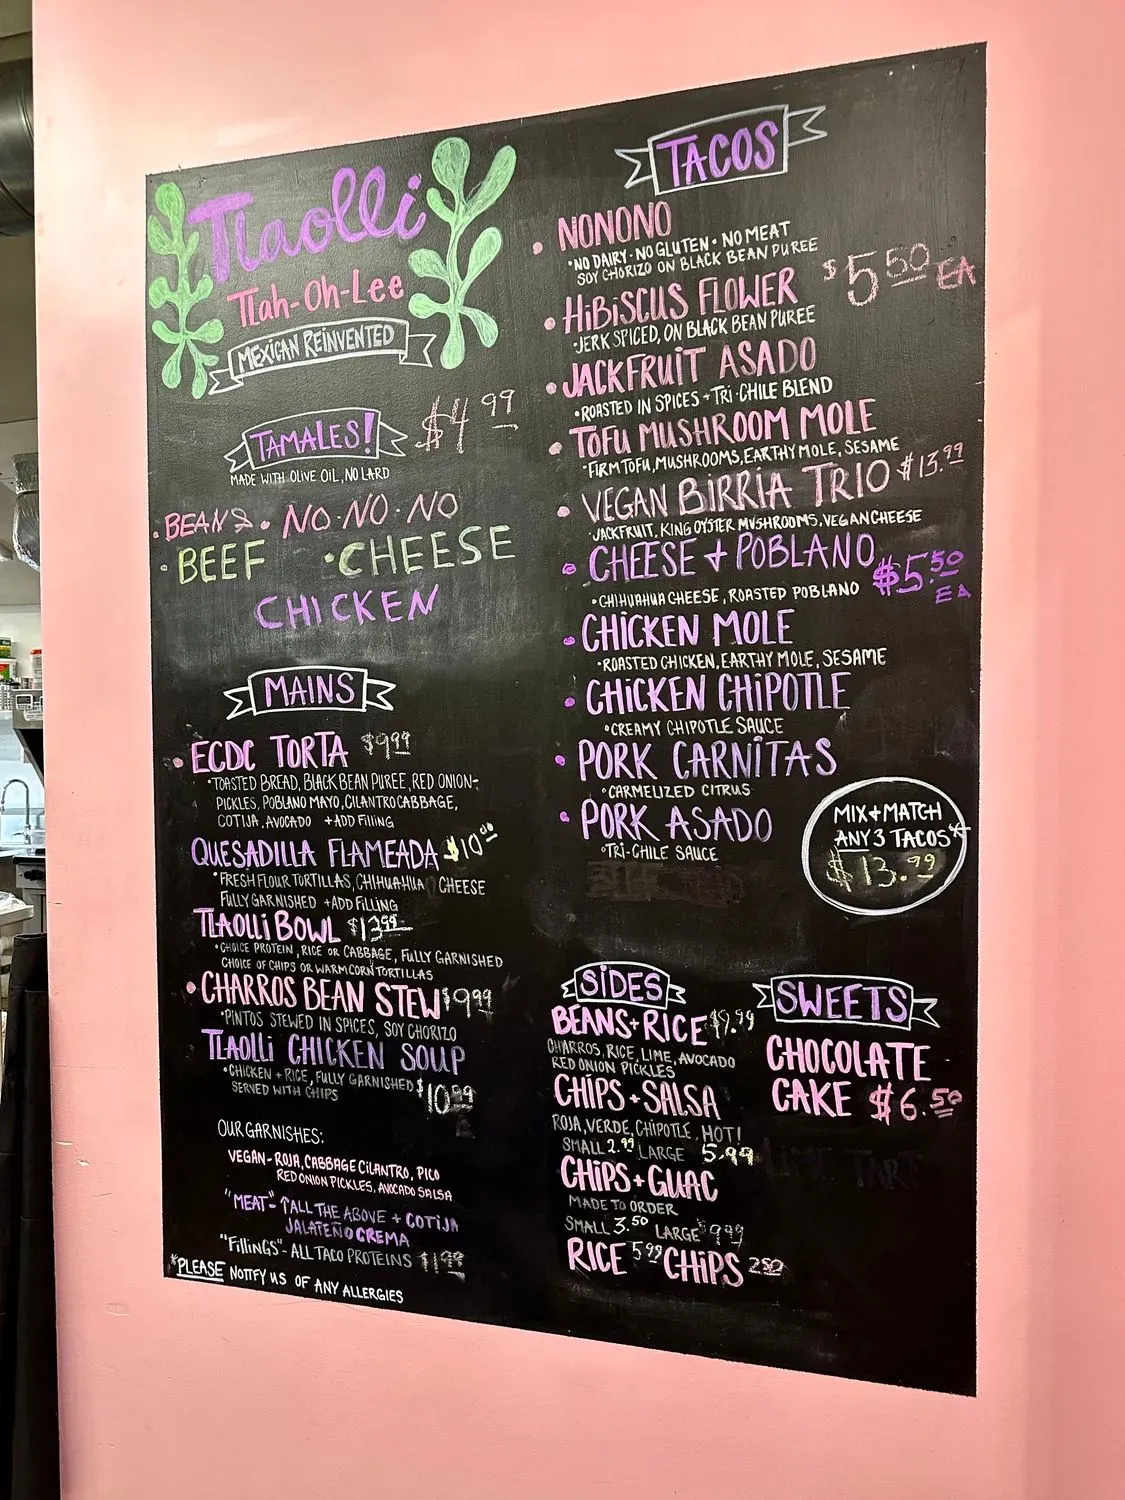 Tlaolli
Tlah-Oh-Lee
MEXICAN REINVENTED
TAMALES! $4.99
MADE WITH OLIVE OIL, NO LARD
• BEANS • NO•NO•NO
• BEEF • CHEESE
CHICKEN
MAINS
• ECDC TORTA $9.99
• TOASTED BREAD, BLACK BEAN PUREE, RED ONION-
PICKLES, POBLANO MAYO, CILANTRO CABBAGE,
COTIJA, AVOCADO + ADD FILLING
QUESADILLA FLAMEADA $10.00
• FRESH FLOUR TORTILLAS, CHIHUAHUA CHEESE
FULLY GARNISHED + ADD FILLING
TLAOLLI BOWL $13.99
• CHOICE PROTEIN, RICE OR CABBAGE, FULLY GARNISHED
CHOICE OF CHIPS OR WARM CORN TORTILLAS
• CHARROS BEAN STEW $9.99
• PINTOS STEWED IN SPICES, SOY CHORIZO
TLAOLLI CHICKEN SOUP
• CHICKEN + RICE, FULLY GARNISHED $10.99
SERVED WITH CHIPS
OUR GARNISHES:
VEGAN - ROJA, CABBAGE CILANTRO, PICO
RED ONION PICKLES, AVOCADO SALSA
"MEAT" - ↑ ALL THE ABOVE + COTIJA
JALAPEÑO CREMA
"FILLINGS" - ALL TACO PROTEINS $1.99
*PLEASE NOTIFY US OF ANY ALLERGIES
TACOS
• NONONO
• NO DAIRY • NO GLUTEN • NO MEAT
SOY CHORIZO ON BLACK BEAN PUREE
$5.50 EA
• HIBISCUS FLOWER
• JERK SPICED, ON BLACK BEAN PUREE
• JACKFRUIT ASADO
• ROASTED IN SPICES + TRI-CHILE BLEND
• TOFU MUSHROOM MOLE
• FIRM TOFU, MUSHROOMS, EARTHY MOLE, SESAME
• VEGAN BIRRIA TRIO $13.99
• JACKFRUIT, KING OYSTER MUSHROOMS, VEGAN CHEESE
• CHEESE + POBLANO $5.50 EA
• CHIHUAHUA CHEESE, ROASTED POBLANO
• CHICKEN MOLE
• ROASTED CHICKEN, EARTHY MOLE, SESAME
• CHICKEN CHIPOTLE
• CREAMY CHIPOTLE SAUCE
• PORK CARNITAS
• CARMELIZED CITRUS
• PORK ASADO
• TRI-CHILE SAUCE
MIX + MATCH
ANY 3 TACOS*
$13.99
SIDES
BEANS + RICE $9.99
CHARROS, RICE, LIME, AVOCADO
RED ONION PICKLES
CHIPS + SALSA
ROJA, VERDE, CHIPOTLE, HOT!
SMALL 2.99 LARGE 5.99
CHIPS + GUAC
MADE TO ORDER
SMALL 3.50 LARGE $9.99
RICE 5.99 CHIPS 2.50
SWEETS
CHOCOLATE
CAKE $6.50